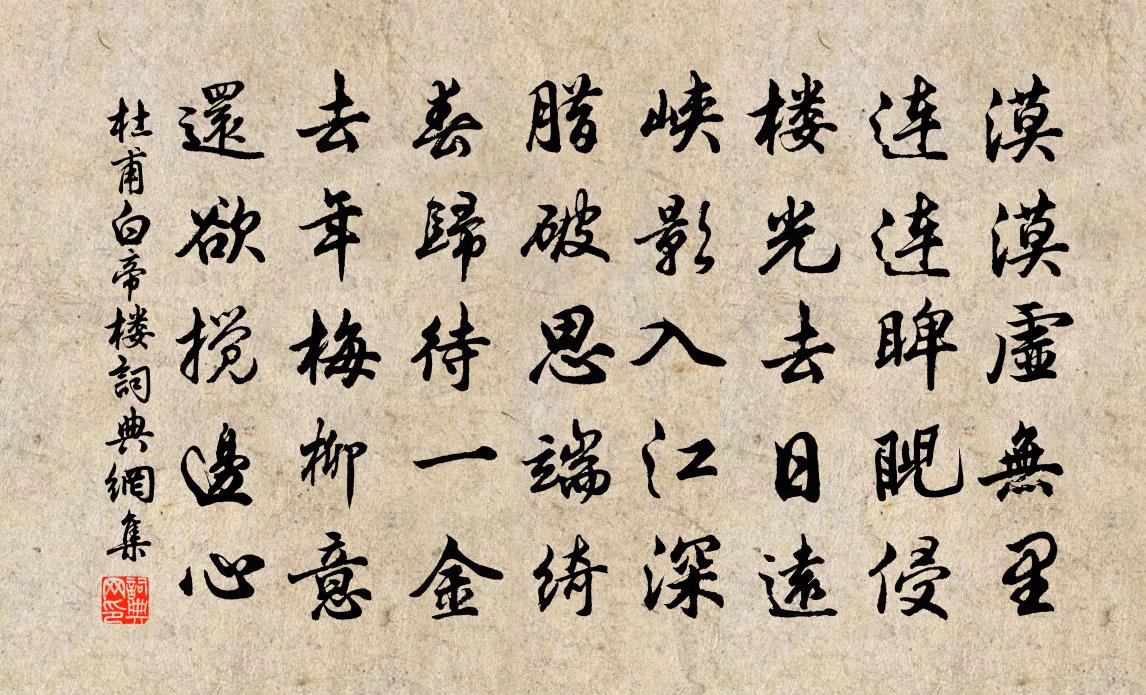 漠漠虛無里
連連睥睨侵
楼光去日遠
峽影入江深
腊破思端綺
春歸待一金
去年梅柳意
還欲攪邊心
杜甫白帝楼詞典網集
詞典網印